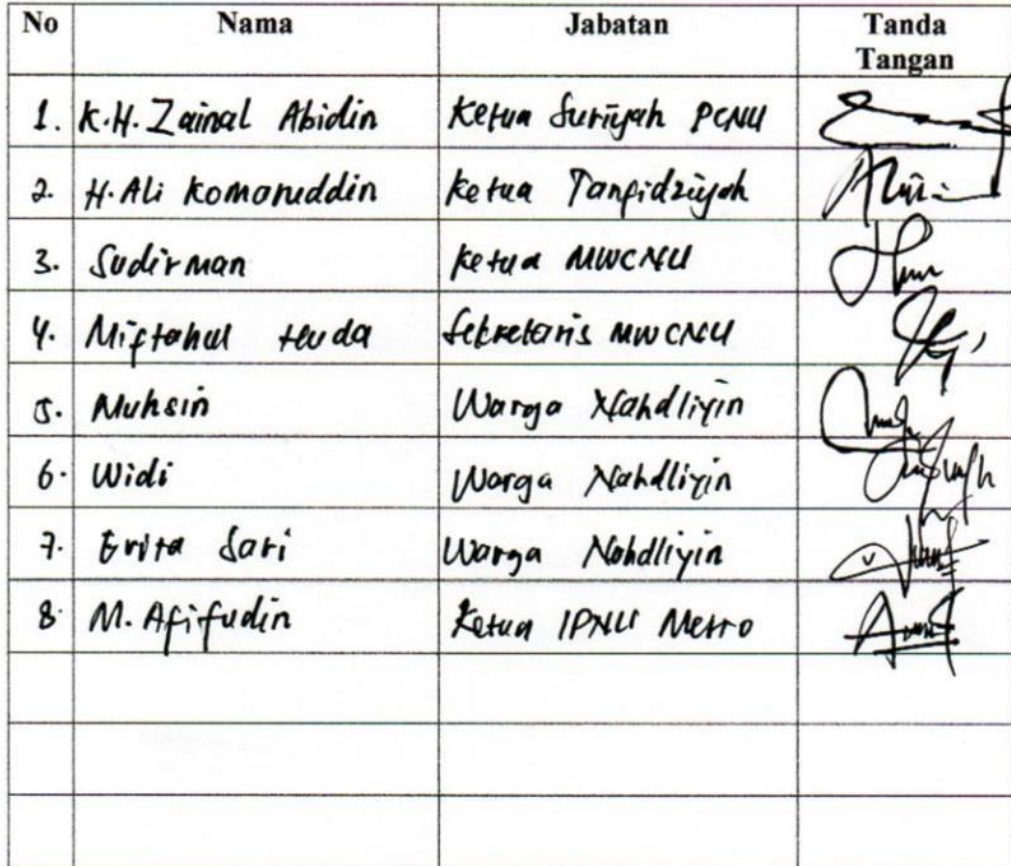 No Nama Jabatan Tanda Tangan
1. K.H. Zainal Abidin Ketua Suriyah PCNU
2. H. Ali Komaruddin Ketua Tanfidziyah
3. Sudirman Ketua MWCNU
4. Miftahul Huda Sekretaris MWCNU
5. Muhsin Warga Nahdliyin
6. Widi Warga Nahdliyin
7. Ervita Sari Warga Nahdliyin
8. M. Afifudin Ketua IPNU Metro